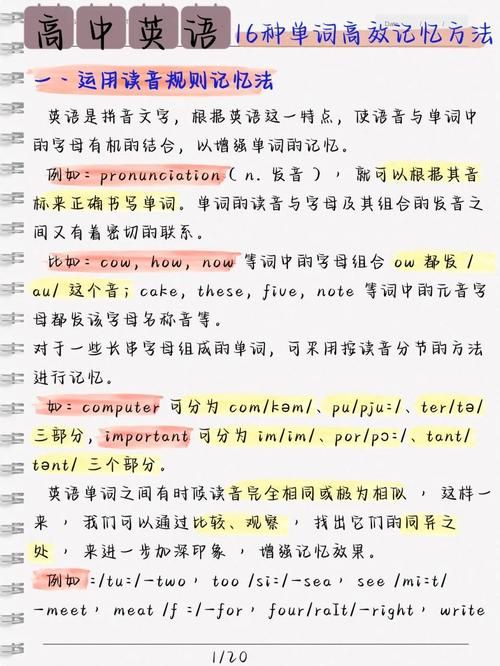 高中英语 16种单词高效记忆方法
一、运用读音规则记忆法
英语是拼音文字，根据英语这一特点，使语音与单词中
的字母有机的结合，以增强单词的记忆。
例如：pronunciation（n. 发音），就可以根据其音
标来正确书写单词。单词的读音与字母及其组合的发音之
间又有着密切的联系。
比如：cow, how, now 等词中的字母组合 ow 都发 /
au/ 这个音；cake, these, five, note 等词中的元音字
母都发该字母名称音等。
对于一些长串字母组成的单词，可采用按读音分节的方法
进行记忆。
如：computer 可分为 com/kəm/、pu/pju:/、ter/tə/
三部分，important 可分为 im/im/、por/pɔ:/、tant/
tənt/ 三个部分。
英语单词之间有时候读音完全相同或极为相似，这样一
来，我们可以通过比较、观察，找出它们的同异之
处，来进一步加深印象，增强记忆效果。
例如：/tu:/-two, too /si:/-sea, see /mi:t/
-meet, meat /f :/-for, four/raIt/-right, write
1/20